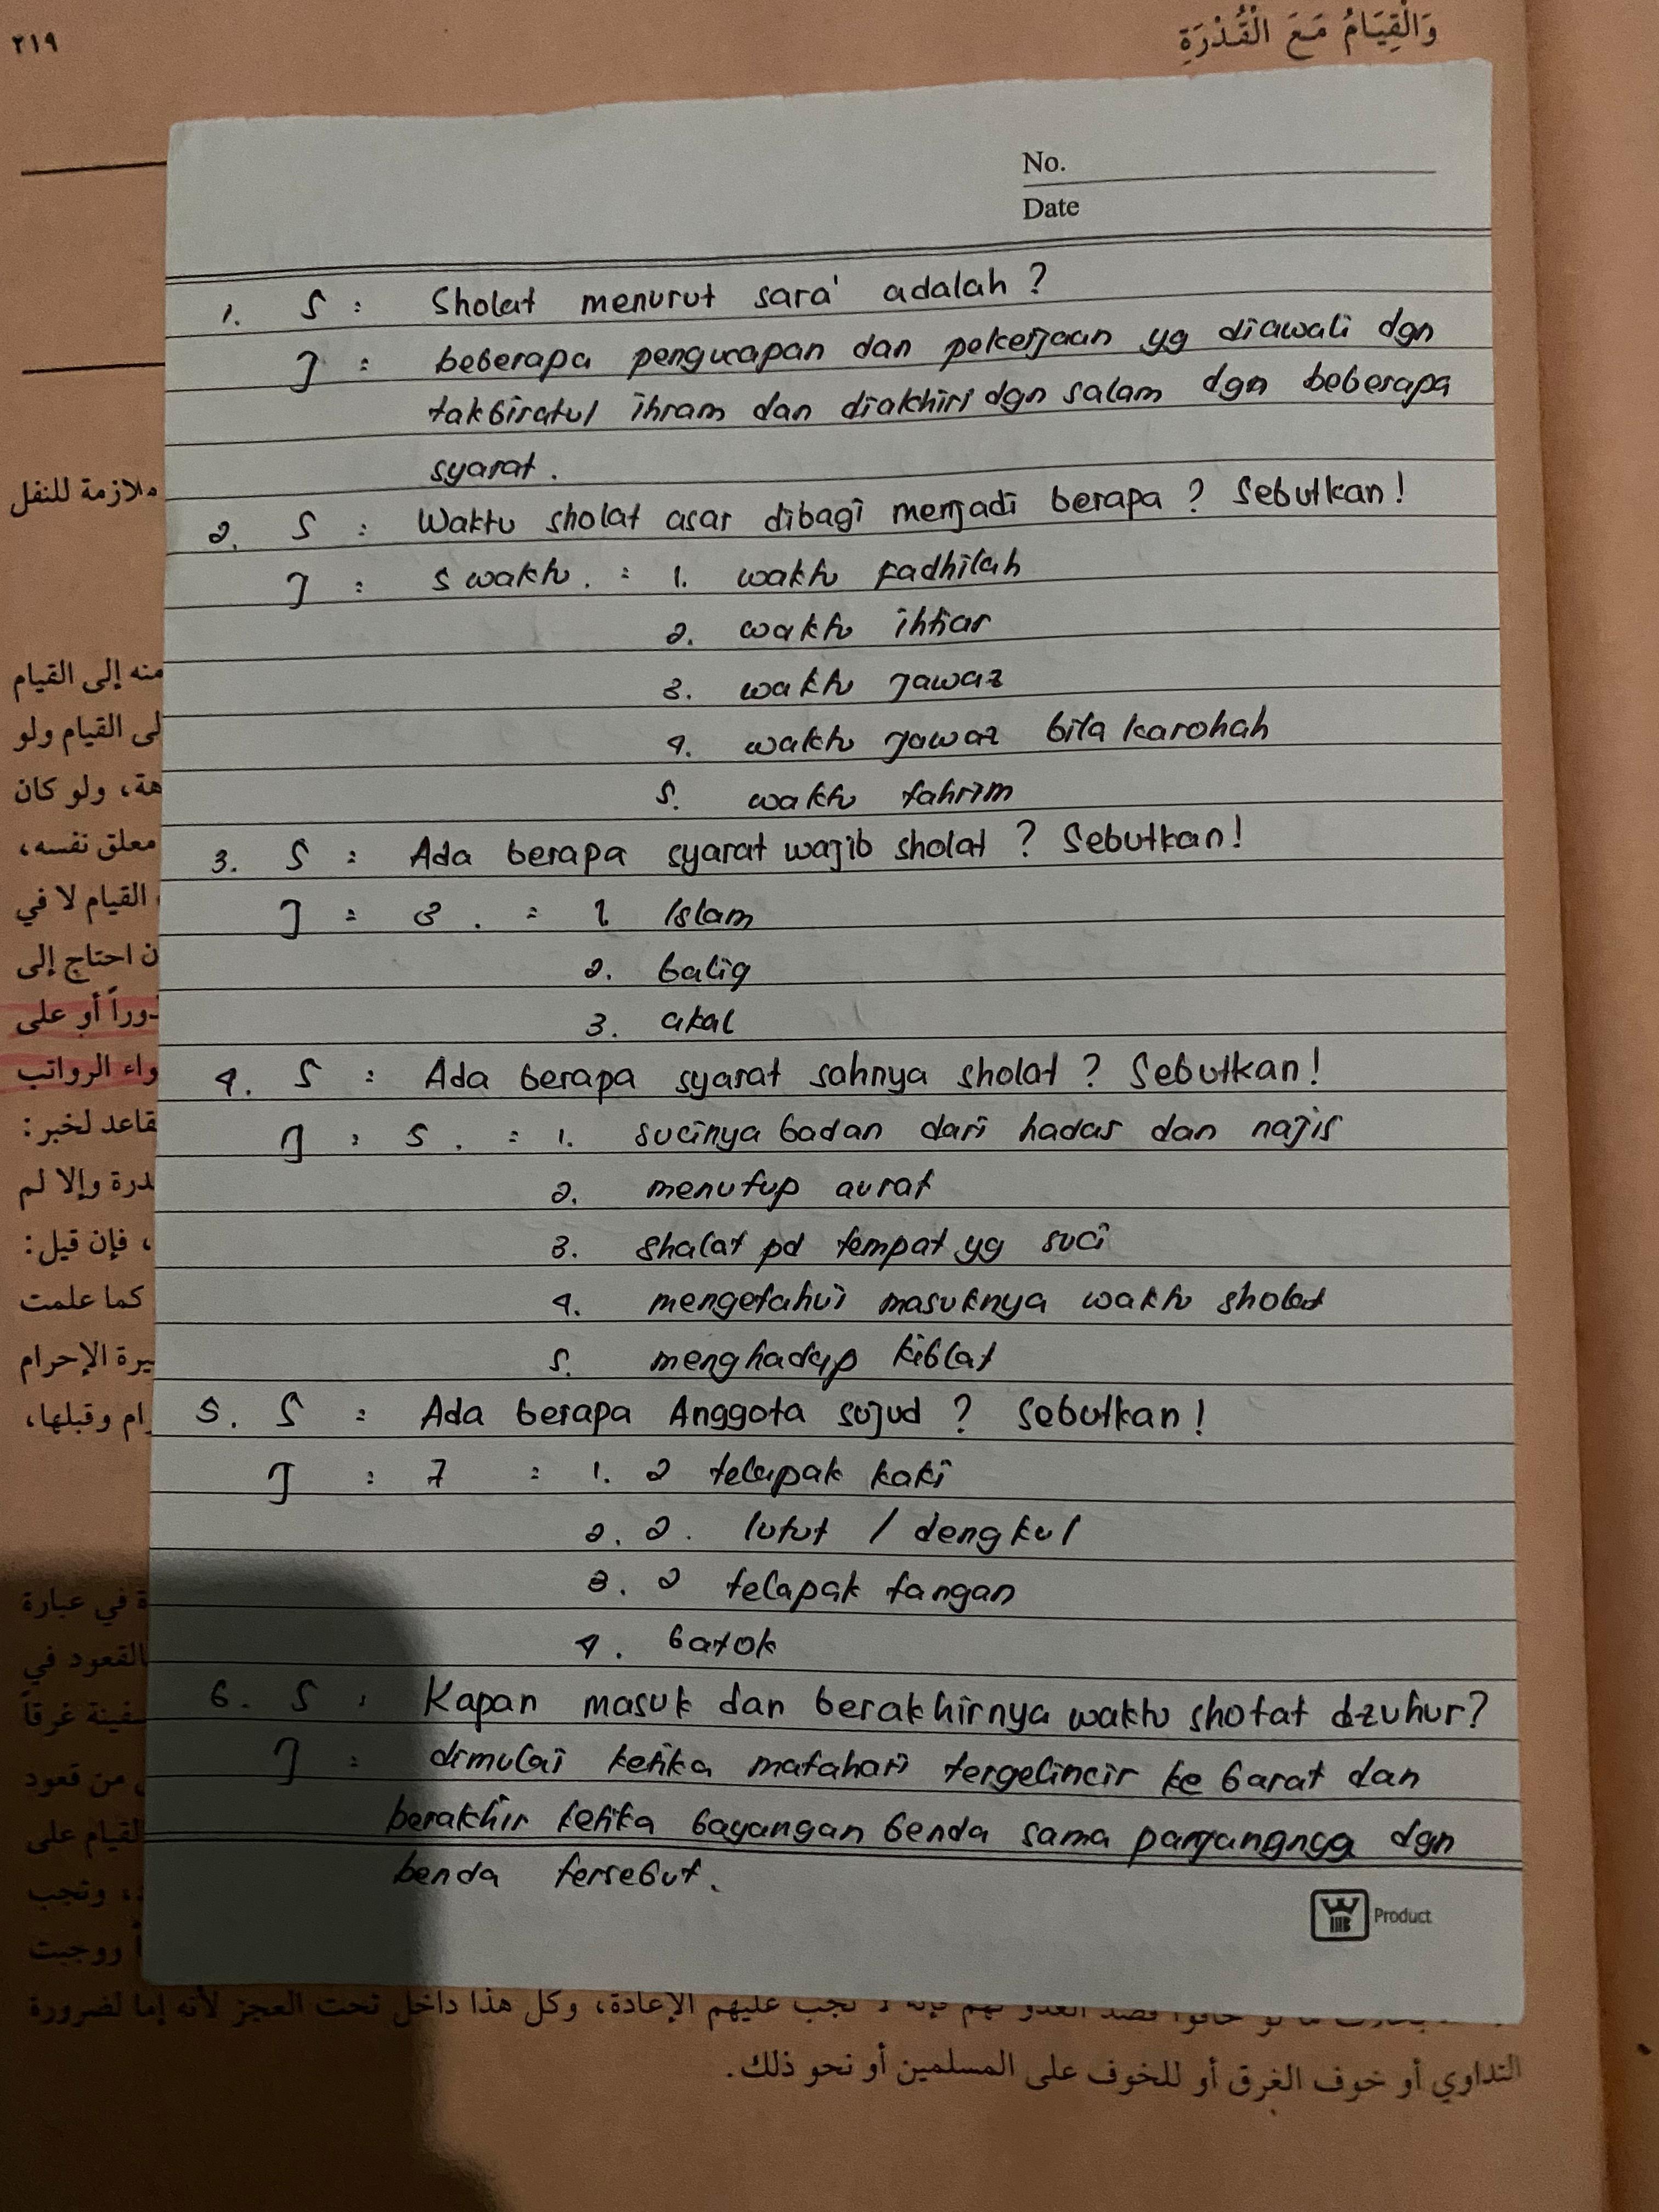 ٢١٩
وَالْقِيَامُ مَعَ الْقُدْرَةِ
No.
Date
1. S : Sholat menurut sara' adalah ?
J : beberapa pengucapan dan pekerjaan yg diawali dgn
takbiratul ihram dan diakhiri dgn salam dgn beberapa
syarat.
2. S : Waktu sholat asar dibagi menjadi berapa ? Sebutkan !
J : 5 waktu. : 1. waktu fadhilah
2. waktu ihtiar
3. waktu jawaz
4. waktu jawaz bila karohah
5. waktu tahrim
3. S : Ada berapa syarat wajib sholat ? Sebutkan !
J : 3. : 1 Islam
2. balig
3. akal
4. S : Ada berapa syarat sahnya sholat ? Sebutkan !
J : 5. : 1. sucinya badan dari hadas dan najis
2. menutup aurat
3. shalat pd tempat yg suci
4. mengetahui masuknya waktu sholat
5. menghadap kiblat
5. S : Ada berapa Anggota sujud ? Sebutkan !
J : 7 : 1. 2 telapak kaki
2. 2. lutut / dengkul
3. 2 telapak tangan
4. batok
6. S : Kapan masuk dan berakhirnya waktu shotat dzuhur?
J : dimulai ketika matahari tergelincir ke barat dan
berakhir ketika bayangan benda sama panjangnya dgn
benda tersebut.
HB Product
ملازمة للنفل
منه إلى القيام
لى القيام ولو
هة، ولو كان
معلق نفسه،
القيام لا في
ن احتاج إلى
دوراً أو على
واء الرواتب
قاعد لخبر:
درة وإلا لم
، فإن قيل:
كما علمت
يرة الإحرام
رام وقبلها،
ة في عبارة
القعود في
سفينة غرقاً
من قعود
لقيام على
وتجب
ووجبت
تجب عليهم الإعادة، وكل هذا داخل تحت العجز لأنه إما لضرورة
التداوي أو خوف الغرق أو للخوف على المسلمين أو نحو ذلك.